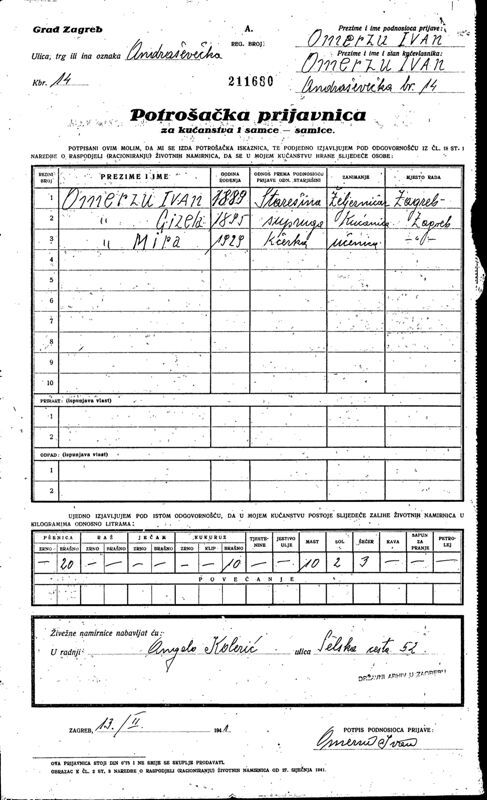 Grad Zagreb
A.
REG. BROJ:
Prezime i ime podnosioca prijave:
OMERZU IVAN
Ulica, trg ili ina oznaka Andraševečka
Prezime i ime i stan kućevlasnika:
OMERZU IVAN
Kbr. 14
211680
Andraševečka br. 14
Potrošačka prijavnica
za kućanstva i samce — samice.
POTPISANI OVIM MOLIM, DA MI SE IZDA POTROŠAČKA ISKAZNICA, TE PODJEDNO IZJAVLJUJEM POD ODGOVORNOŠĆU IZ ČL. 18 ST. 1
NAREDBE O RASPODJELI (RACIONIRANJU) ŽIVOTNIH NAMIRNICA, DA SE U MOJEM KUĆANSTVU HRANE SLIJEDEĆE OSOBE:
REDNI BROJ PREZIME I IME GODINA ROĐENJA ODNOS PREMA PODNOSIOCU PRIJAVE ODN. STARJEŠINI ZANIMANJE MJESTO RADA
1 OMERZU IVAN 1889 Starešina Željezničar Zagreb
2 " Gizela 1895 supruga Kućanica Zagreb
3 " Mira 1929 Kćerka učenica —"—
4
5
6
7
8
9
10
PRIRAST: (ispunjava vlast)
1
2
ODPAD: (ispunjava vlast)
1
2
UJEDNO IZJAVLJUJEM POD ISTOM ODGOVORNOŠĆU, DA U MOJEM KUĆANSTVU POSTOJE SLIJEDEĆE ZALIHE ŽIVOTNIH NAMIRNICA U
KILOGRAMIMA ODNOSNO LITRAMA:
PŠENICA RAŽ JEČAM KUKURUZ TJESTENINE JESTIVO ULJE MAST SOL ŠEĆER KAVA SAPUN ZA PRANJE PETROLEJ
ZRNO BRAŠNO ZRNO BRAŠNO ZRNO BRAŠNO ZRNO KLIP BRAŠNO
— 20 — — — — — — 10 — — 10 2 3 — — —
POVEĆANJE
Živežne namirnice nabavljat ću:
U radnji: Angelo Kolerić ulica Selska cesta 52
DRŽAVNI ARHIV U ZAGREBU
ZAGREB, 13./II. 1941.
POTPIS PODNOSIOCA PRIJAVE:
Omerzu Ivan
OVA PRIJAVNICA STOJI DIN 0'75 I NE SMIJE SE SKUPLJE PRODAVATI.
OBRAZAC K ČL. 2 ST. 3 NAREDBE O RASPODJELI (RACIONIRANJU) ŽIVOTNIH NAMIRNICA OD 27. SIJEČNJA 1941.